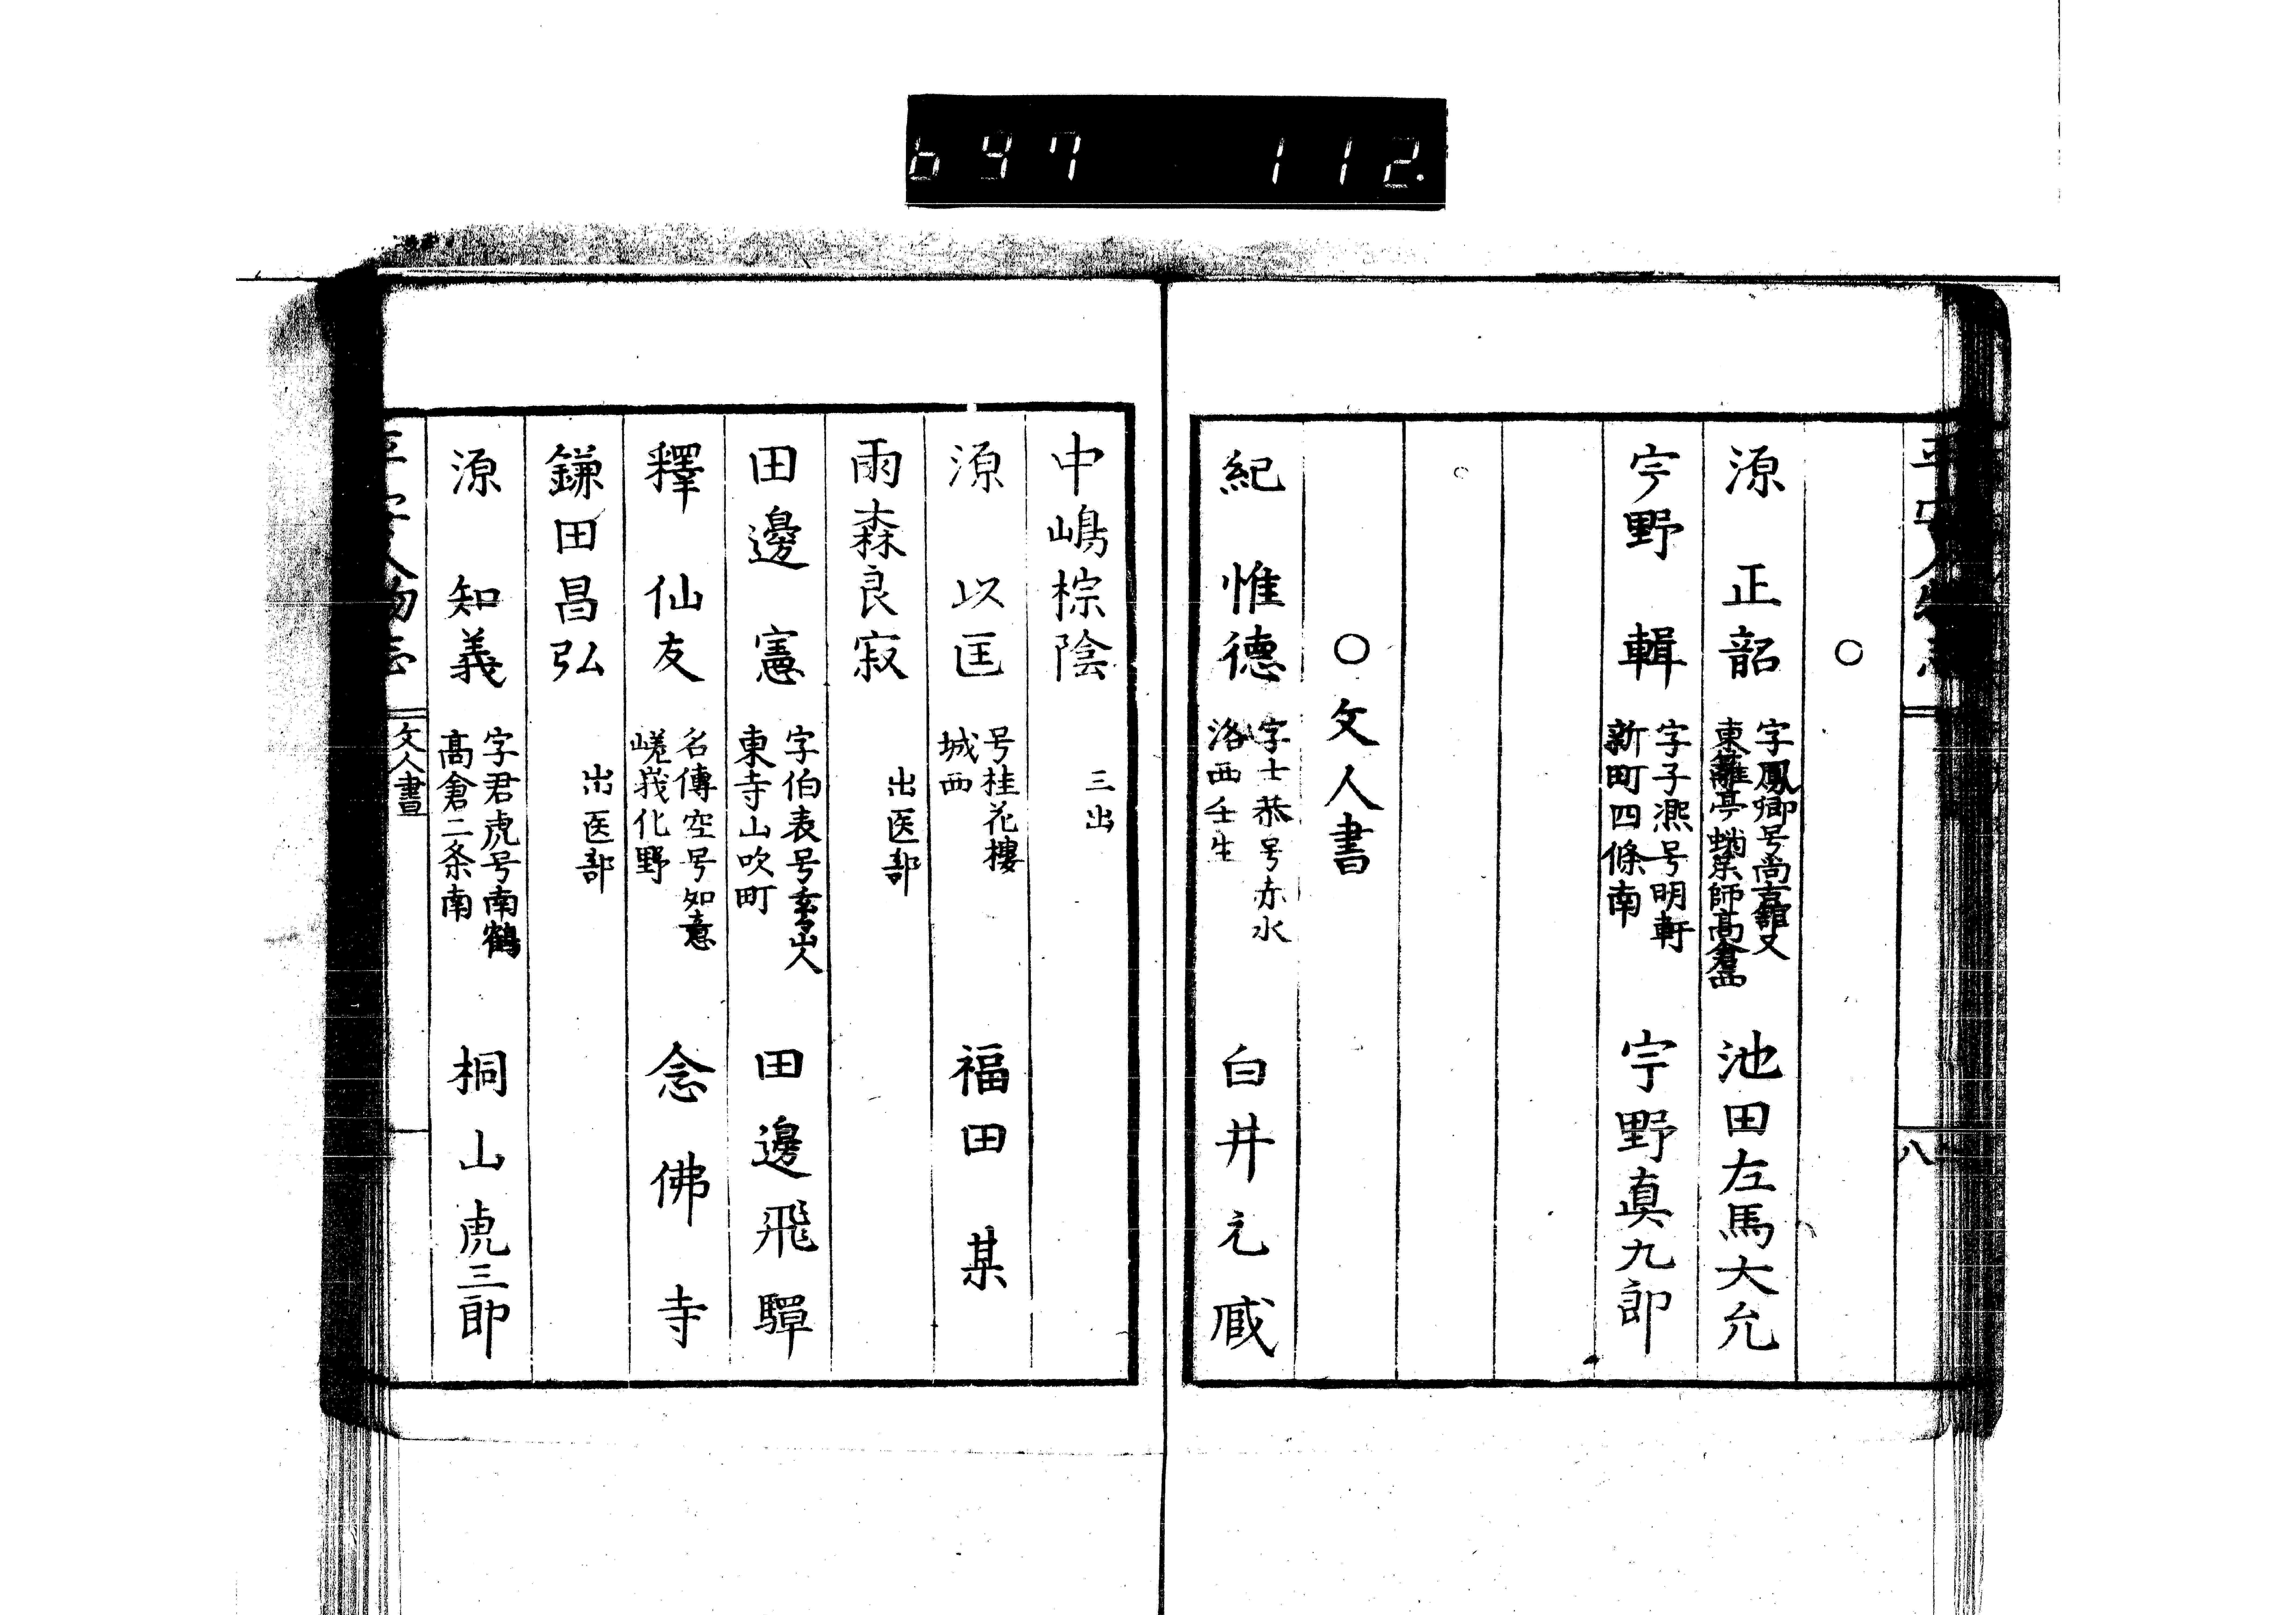 697 112.
平安人物志
八
○
源正韶 字鳳卿号尚古館又東籬亭蛸薬師高倉西 池田左馬大允
宇野輯 字子燕号明軒新町四條南 宇野真九郎
○文人書
紀惟德 字士恭号赤水洛西壬生 白井元蔵
中嶋棕陰 三出
源以匡 号桂花樓城西 福田某
雨森良寂 出医部
田邊憲 字伯表号玄々山人東寺山吹町 田邊飛驒
釋仙友 名傳空号知意嵯峩化野 念佛寺
鎌田昌弘 出医部
源知義 字君虎号南鶴髙倉二条南 桐山虎三郎
平安人物志
文人書